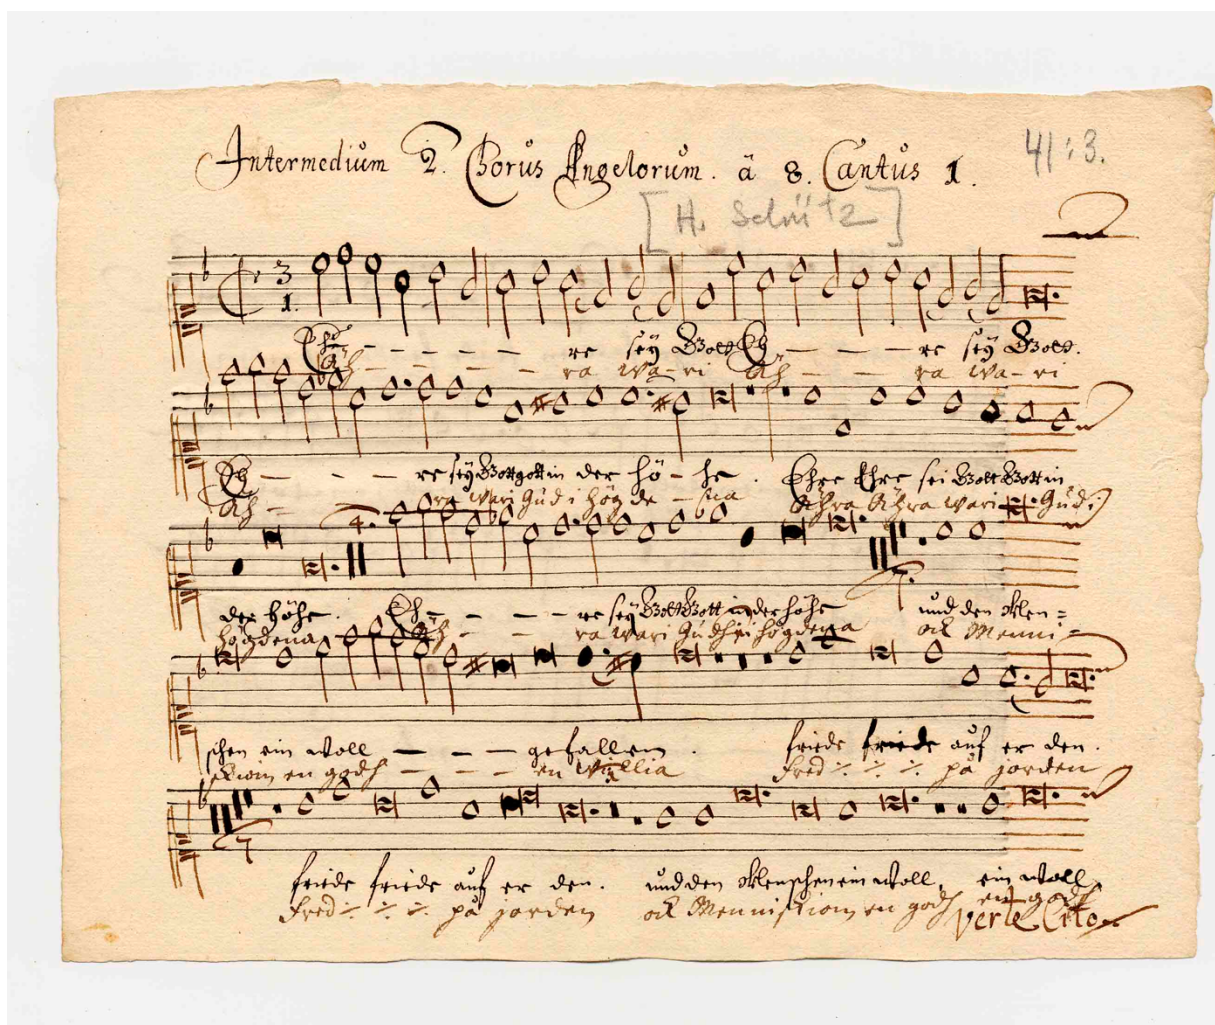 Intermedium 2. Chorus Angelorum. â 8. Cantus 1.
41:3.
[H. Schütz]
3
1.
Eh - - - - - - re seÿ Gott Eh - - - - re seÿ Gott.
Äh - - - - - - ra wa-ri Äh - - ra wa-ri
Eh - - - - re seÿ Gott gott in der hö - he . Ehre Ehre sei Gott Gott in
Äh - ra wari Gud i högde - na Ähra Ähra wari Gud i
4.
der Höhe . Eh - - - - - re seÿ Gott Gott in der höhe und den Men=
högdena Äh - - - ra wari Gudh i högdena och Menni-
7.
schen ein woll — — — gefallen . friede friede auf er den .
skiom en godh - - - en willia Fred ·/· ·/· på jorden
7
friede friede auf er den . und den Menschen ein woll, ein woll
Fred ·/· ·/· på jorden och Menniskiom en godh en godh
Verte Cito